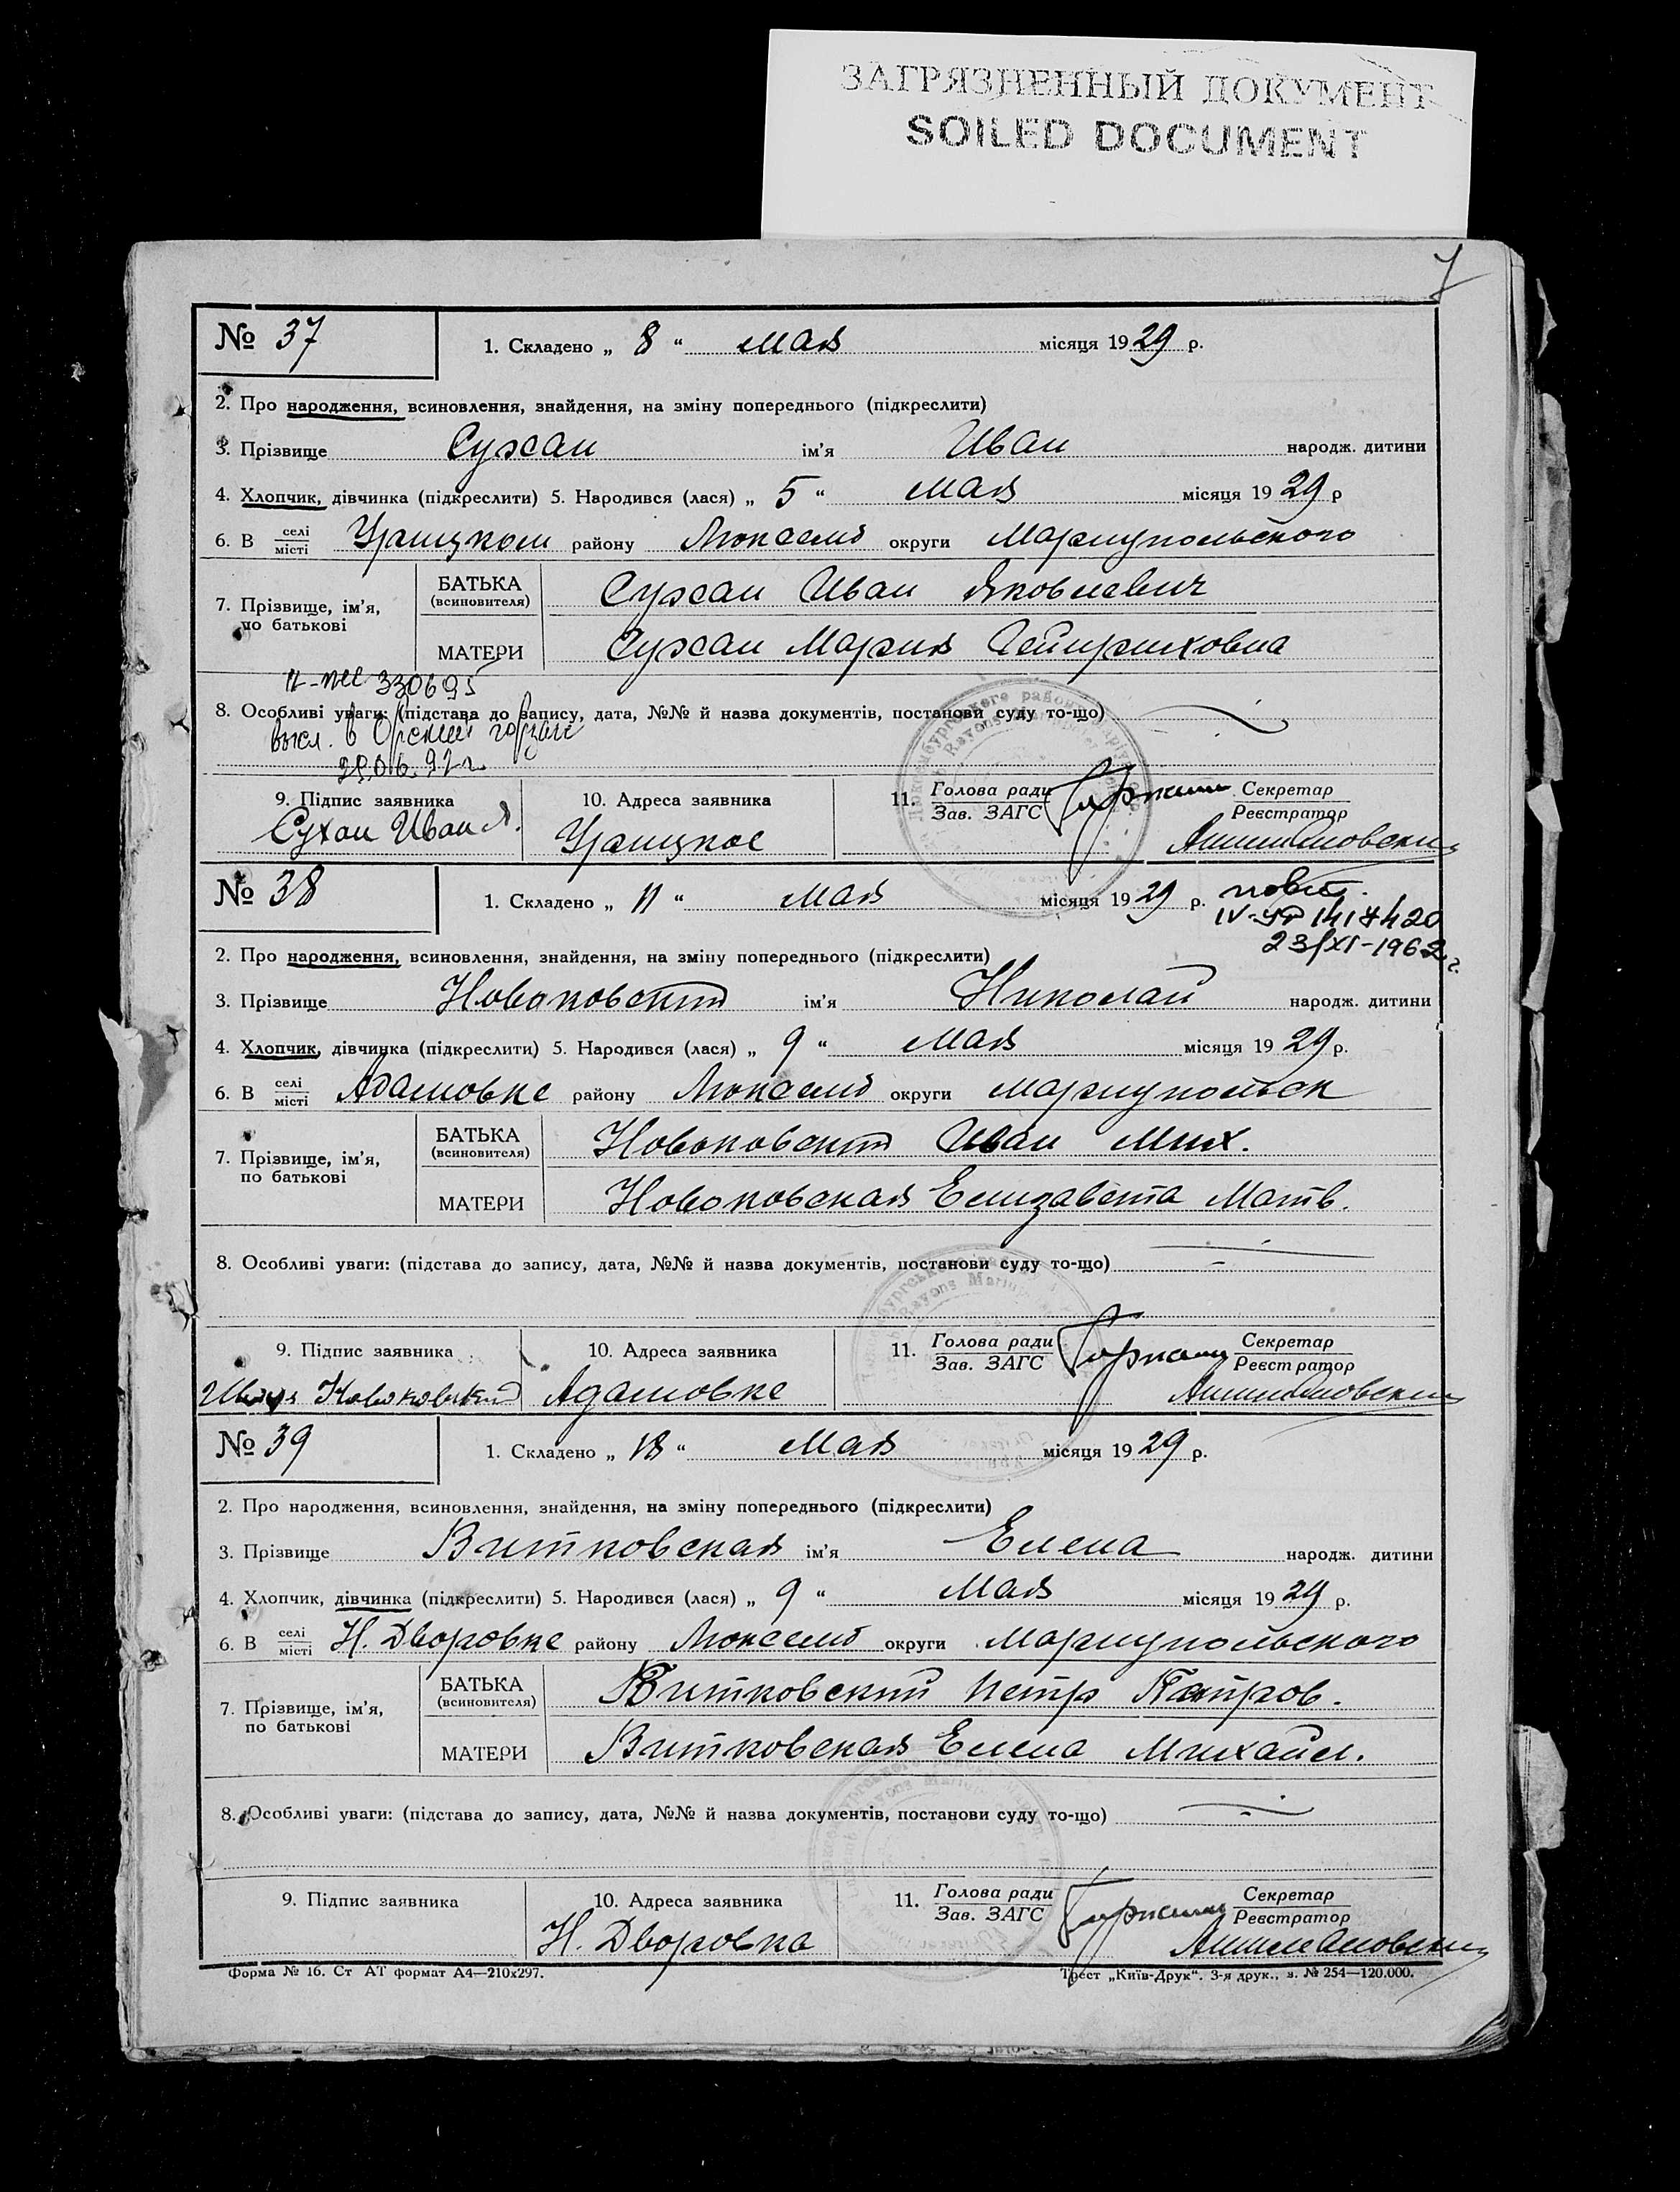 ЗАГРЯЗНЕННЫЙ ДОКУМЕНТ
SOILED DOCUMENT
7
№ 37 1. Складено „ 8 “ мая місяця 1929 р.
2. Про народження, всиновлення, знайдення, на зміну попереднього (підкреслити)
3. Прізвище Сухан ім'я Иван народж. дитини
4. Хлопчик, дівчинка (підкреслити) 5. Народився (лася) „ 5 “ мая місяця 1929 р
6. В селі/місті Урицком району Люксемб округи Мариупольского
7. Прізвище, ім'я, по батькові
БАТЬКА (всиновителя) Сухан Иван Яковлевич
МАТЕРИ Сухан Мария Гейнриховна
330695
8. Особливі уваги: (підстава до запису, дата, №№ й назва документів, постанови суду то-що)
высл. в Орский горзагс
9. Підпис заявника 10. Адреса заявника 11. Голова ради/Зав. ЗАГС Секретар/Реєстратор
Сухан Иван Я. Урицкое
№ 38 1. Складено „ 11 “ мая місяця 1929 р. повт.
IV-УР 1417420
23/XI-1962 г.
2. Про народження, всиновлення, знайдення, на зміну попереднього (підкреслити)
3. Прізвище Новоковский ім'я Николай народж. дитини
4. Хлопчик, дівчинка (підкреслити) 5. Народився (лася) „ 9 “ мая місяця 1929 р.
6. В селі/місті Адамовке району Люксемб округи мариупольск
7. Прізвище, ім'я, по батькові
БАТЬКА (всиновителя) Новоковский Иван Мих.
МАТЕРИ Новоковская Елизавета Матв.
8. Особливі уваги: (підстава до запису, дата, №№ й назва документів, постанови суду то-що)
9. Підпис заявника 10. Адреса заявника 11. Голова ради/Зав. ЗАГС Секретар/Реєстратор
Иван Новоковский Адамовке
№ 39 1. Складено „ 18 “ мая місяця 1929 р.
2. Про народження, всиновлення, знайдення, на зміну попереднього (підкреслити)
3. Прізвище Витковская ім'я Елена народж. дитини
4. Хлопчик, дівчинка (підкреслити) 5. Народився (лася) „ 9 “ мая місяця 1929 р.
6. В селі/місті Н. Дворовке району Люксемб округи Мариупольского
7. Прізвище, ім'я, по батькові
БАТЬКА (всиновителя) Витковский Петр Петров.
МАТЕРИ Витковская Елена Михайл.
8. Особливі уваги: (підстава до запису, дата, №№ й назва документів, постанови суду то-що)
9. Підпис заявника 10. Адреса заявника 11. Голова ради/Зав. ЗАГС Секретар/Реєстратор
Н. Дворовка
Форма № 16. Ст АТ формат А4—210х297. Трест „Київ-Друк“. 3-я друк., з. № 254—120.000.